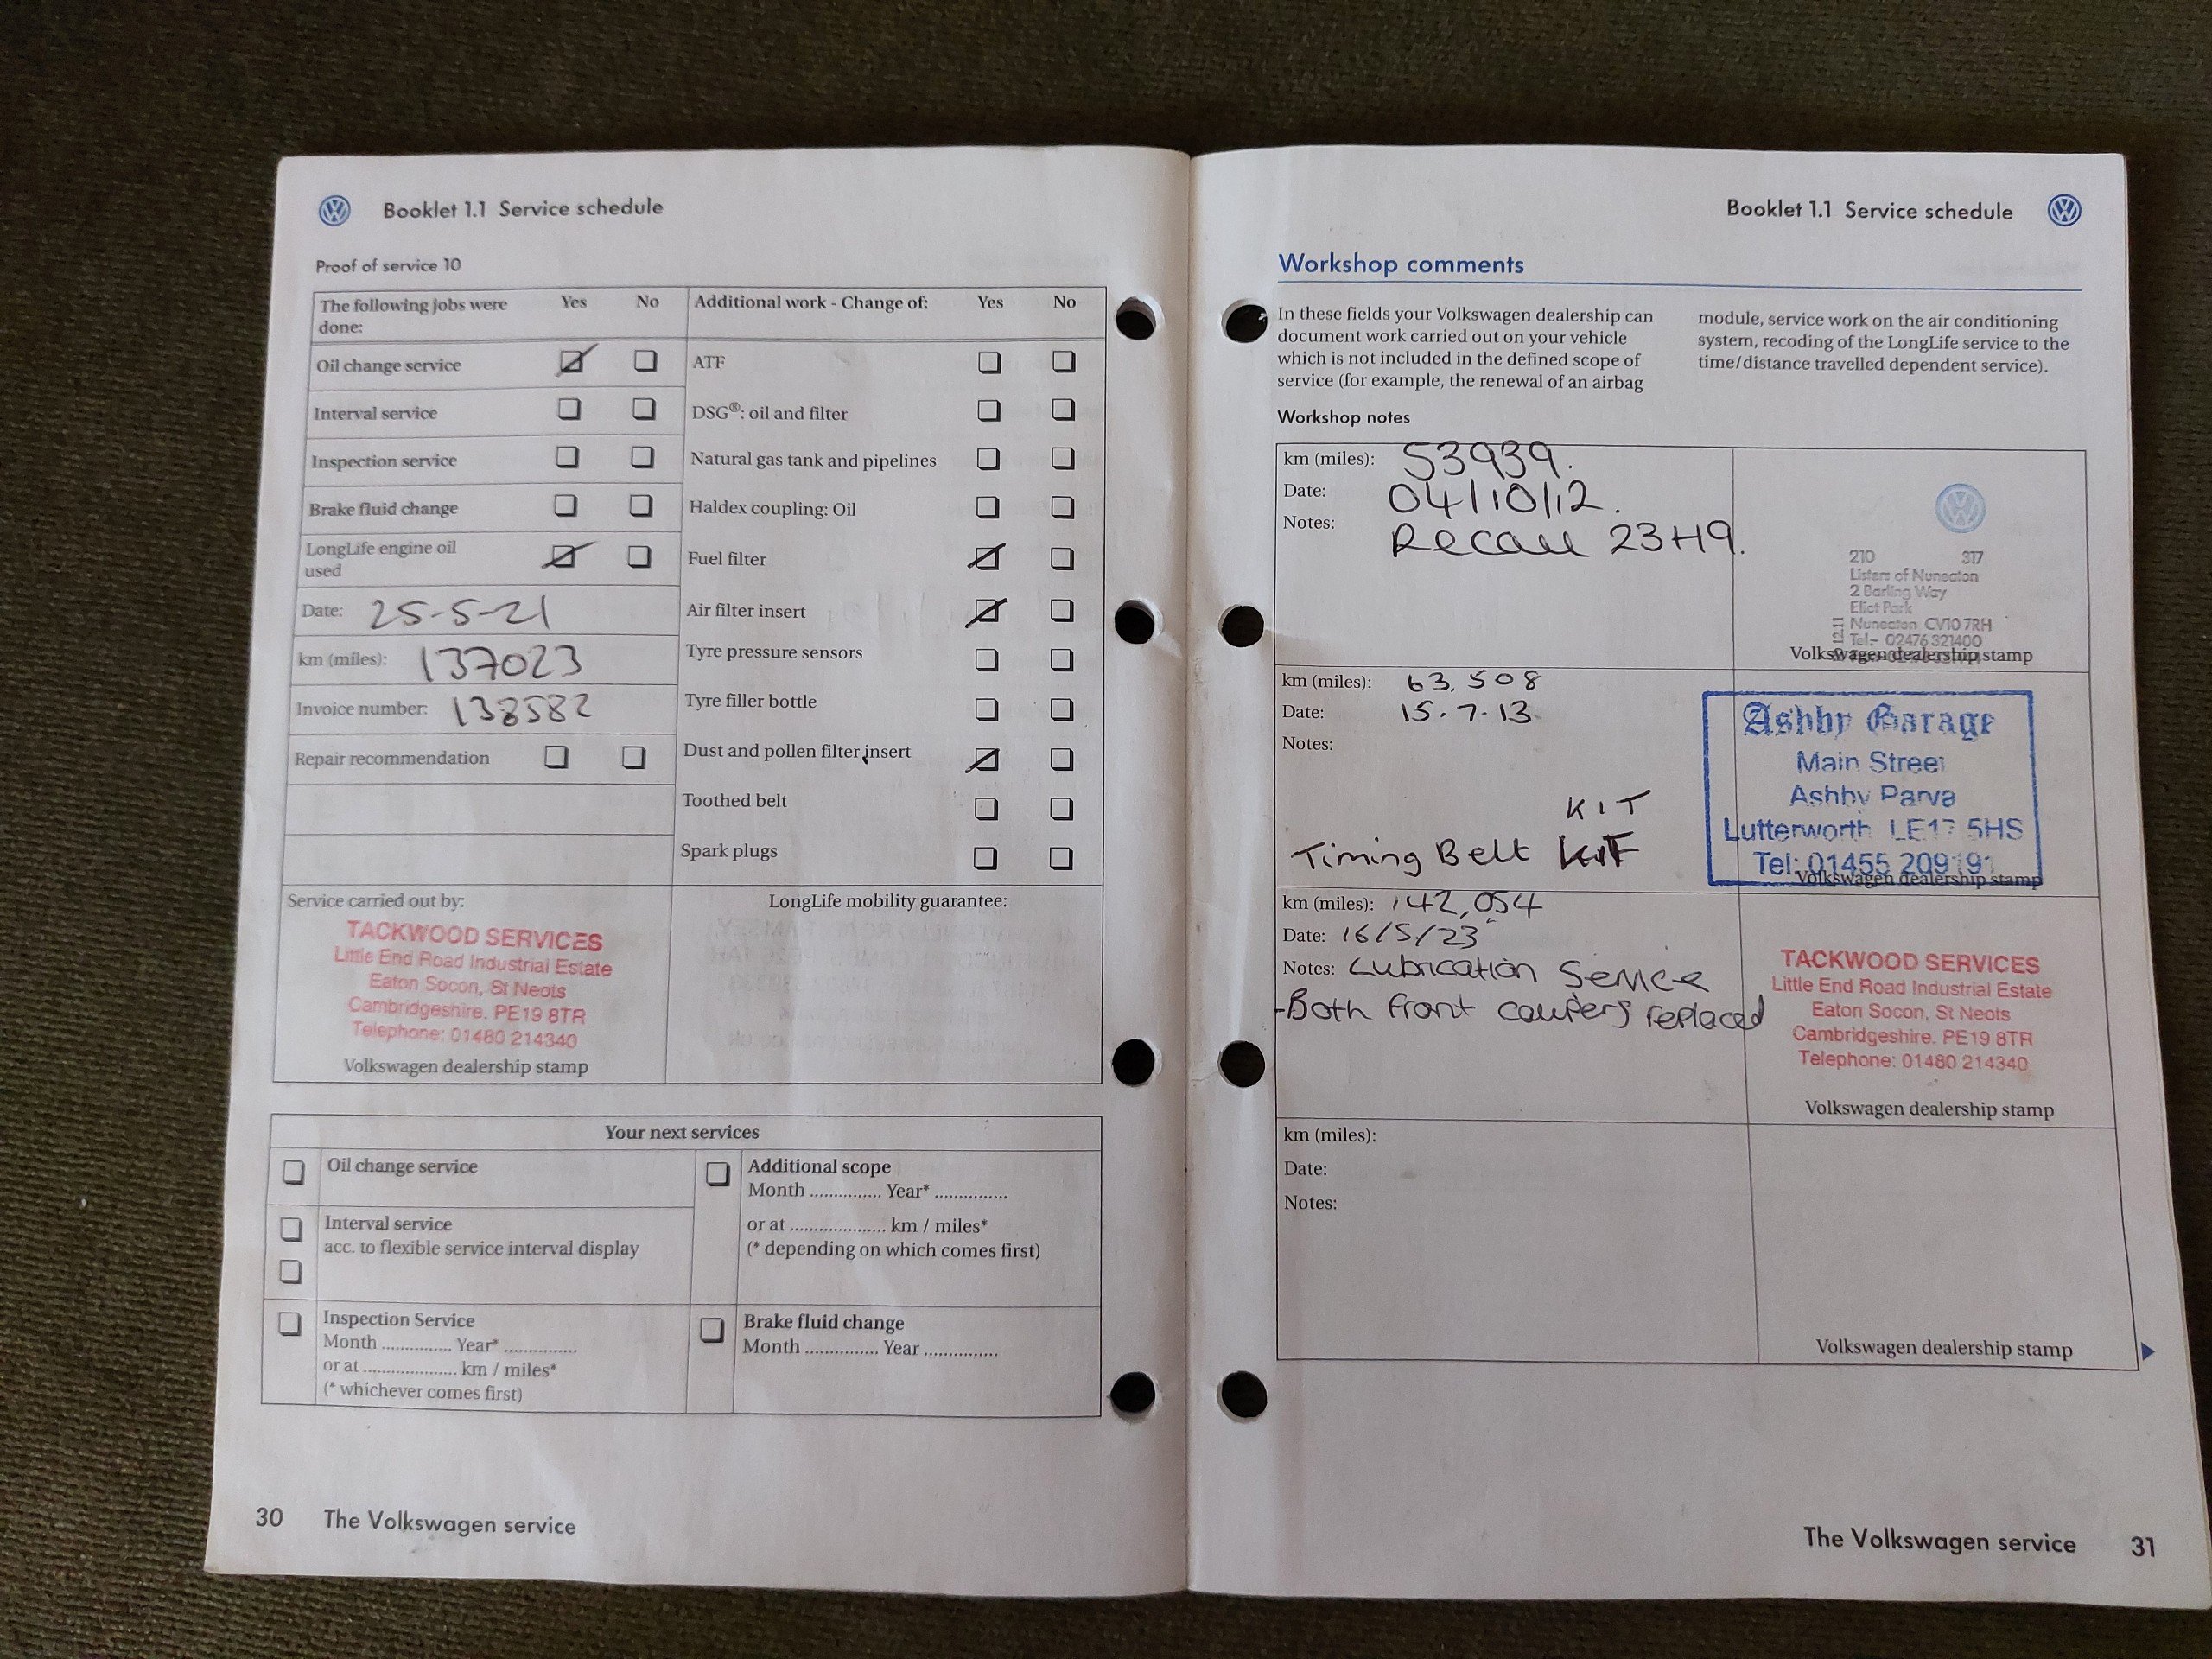 Booklet 1.1 Service schedule
Proof of service 10
The following jobs were done: Yes No
Additional work - Change of: Yes No
Oil change service
ATF
Interval service
DSG®: oil and filter
Inspection service
Natural gas tank and pipelines
Brake fluid change
Haldex coupling: Oil
LongLife engine oil used
Fuel filter
Date: 25-5-21
Air filter insert
km (miles): 137023
Tyre pressure sensors
Invoice number: 138582
Tyre filler bottle
Repair recommendation
Dust and pollen filter insert
Toothed belt
Spark plugs
Service carried out by:
LongLife mobility guarantee:
TACKWOOD SERVICES
Little End Road Industrial Estate
Eaton Socon, St Neots
Cambridgeshire. PE19 8TR
Telephone: 01480 214340
Volkswagen dealership stamp
Your next services
Oil change service
Additional scope
Month ............... Year* ...............
Interval service
acc. to flexible service interval display
or at .................... km / miles*
(* depending on which comes first)
Inspection Service
Month ............... Year* ...............
or at .................... km / miles*
(* whichever comes first)
Brake fluid change
Month ............... Year ...............
30 The Volkswagen service
Booklet 1.1 Service schedule
Workshop comments
In these fields your Volkswagen dealership can
document work carried out on your vehicle
which is not included in the defined scope of
service (for example, the renewal of an airbag
module, service work on the air conditioning
system, recoding of the LongLife service to the
time/distance travelled dependent service).
Workshop notes
km (miles): 53939.
Date: 04/10/12.
Notes: Recall 23H9.
210 317
Listers of Nuneaton
2 Darling Way
Eliot Park
Nuneaton CV10 7RH
Tel:- 02476 321400
Volkswagen dealership stamp
km (miles): 63,508
Date: 15.7.13
Notes:
KIT
Timing Belt KIT
Ashby Garage
Main Street
Ashby Parva
Lutterworth LE17 5HS
Tel: 01455 209191
Volkswagen dealership stamp
km (miles): 142,054
Date: 16/5/23
Notes: Lubrication Service
-Both front calipers replaced
TACKWOOD SERVICES
Little End Road Industrial Estate
Eaton Socon, St Neots
Cambridgeshire. PE19 8TR
Telephone: 01480 214340
Volkswagen dealership stamp
km (miles):
Date:
Notes:
Volkswagen dealership stamp
The Volkswagen service 31